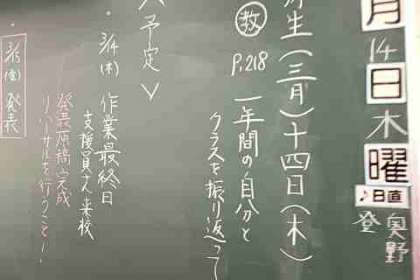 月14日木曜
日直
奥野
登
弥生(三月)十四日(木)
教 P.218 一年間の自分と
クラスを振り返って
〈予定〉
・3/14(木) 作業最終日
支援員さん来校
発表原稿完成
リハーサルを行うこと!
・3/15(金) 発表